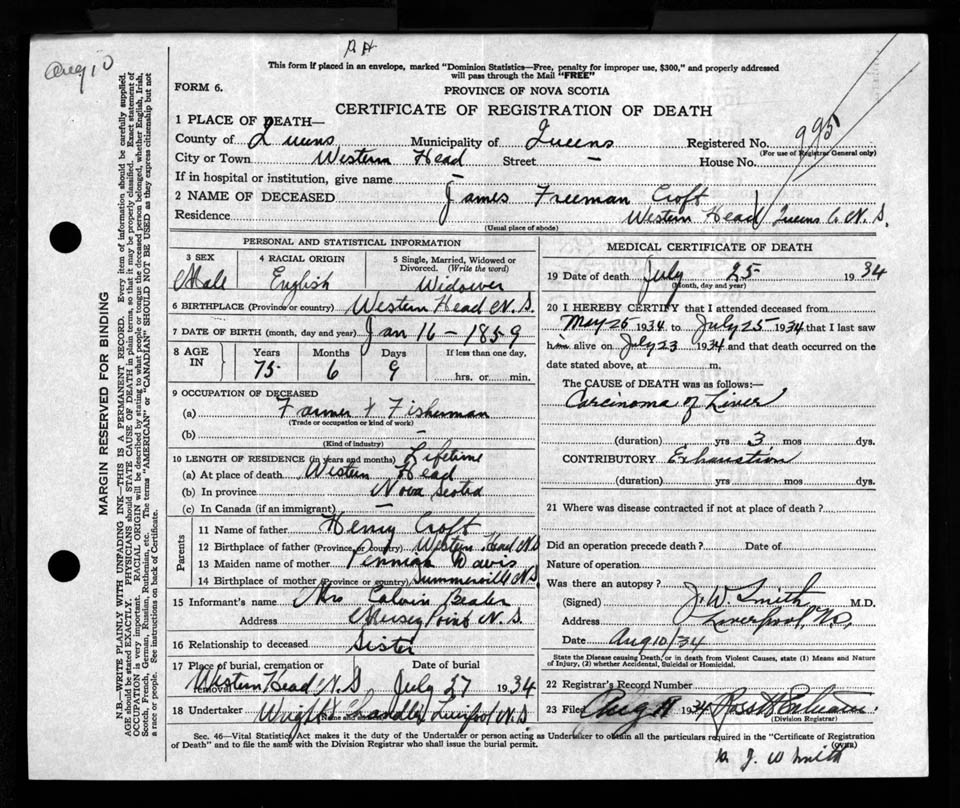 Aug 10
This form if placed in an envelope, marked "Dominion Statistics—Free, penalty for improper use, $300," and properly addressed
will pass through the Mail "FREE"
FORM 6.
PROVINCE OF NOVA SCOTIA
CERTIFICATE OF REGISTRATION OF DEATH
1 PLACE OF DEATH—
County of Queens Municipality of Queens Registered No. 995
(For use of Registrar General only)
City or Town Western Head Street — House No.
If in hospital or institution, give name —
2 NAME OF DECEASED James Freeman Croft
Residence Western Head Queens Co N.S.
(Usual place of abode)
MARGIN RESERVED FOR BINDING
N.B.—WRITE PLAINLY WITH UNFADING INK—THIS IS A PERMANENT RECORD. Every item of information should be carefully supplied.
AGE should be stated EXACTLY. PHYSICIANS should STATE CAUSE OF DEATH in plain terms, so that it may be properly classified. Exact statement of
OCCUPATION is very important. RACIAL ORIGIN will be described by stating to what people or tongue the deceased person belonged, whether English, Irish,
Scotch, French, German, Russian, Ruthenian, etc. The terms "AMERICAN" or "CANADIAN" SHOULD NOT BE USED as they express citizenship but not
a race or people. See instructions on back of Certificate.
PERSONAL AND STATISTICAL INFORMATION
3 SEX 4 RACIAL ORIGIN 5 Single, Married, Widowed or
Divorced. (Write the word)
Male English Widower
6 BIRTHPLACE (Province or country) Western Head N.S.
7 DATE OF BIRTH (month, day and year) Jan 16 – 1859
8 AGE IN Years Months Days If less than one day,
75 6 9 hrs. or min.
9 OCCUPATION OF DECEASED
(a) Farmer & Fisherman
(Trade or occupation or kind of work)
(b) —
(Kind of industry)
10 LENGTH OF RESIDENCE (in years and months) Lifetime
(a) At place of death Western Head
(b) In province Nova Scotia
(c) In Canada (if an immigrant) —
Parents
11 Name of father Henry Croft
12 Birthplace of father (Province or country) Western Head N.S
13 Maiden name of mother Davis
14 Birthplace of mother (Province or country) Summerville N.S.
15 Informant's name Mrs Calvin
Address Mersey Point N.S.
16 Relationship to deceased Sister
17 Place of burial, cremation or removal Date of burial
Western Head N.S July 27 1934
18 Undertaker Wright & Chandler Liverpool N.S
MEDICAL CERTIFICATE OF DEATH
19 Date of death July 25 1934
(Month, day and year)
20 I HEREBY CERTIFY that I attended deceased from
May 25 1934 to July 25 1934 that I last saw
him alive on July 23 1934 and that death occurred on the
date stated above, at m.
The CAUSE OF DEATH was as follows:—
Carcinoma of Liver
(duration) yrs 3 mos dys.
CONTRIBUTORY Exhaustion
(duration) yrs. mos. dys.
21 Where was disease contracted if not at place of death?
Did an operation precede death? Date of
Nature of operation
Was there an autopsy?
(Signed) J. W. Smith M.D.
Address Liverpool, N.S.
Date Aug 10/34
State the Disease causing Death, or in death from Violent Causes, state (1) Means and Nature
of Injury, (2) whether Accidental, Suicidal or Homicidal.
22 Registrar's Record Number
23 Filed Aug 1934
(Division Registrar)
Sec. 46—Vital Statistics Act makes it the duty of the Undertaker or person acting as Undertaker to obtain all the particulars required in the "Certificate of Registration
of Death" and to file the same with the Division Registrar who shall issue the burial permit. (OVER)
J W Smith